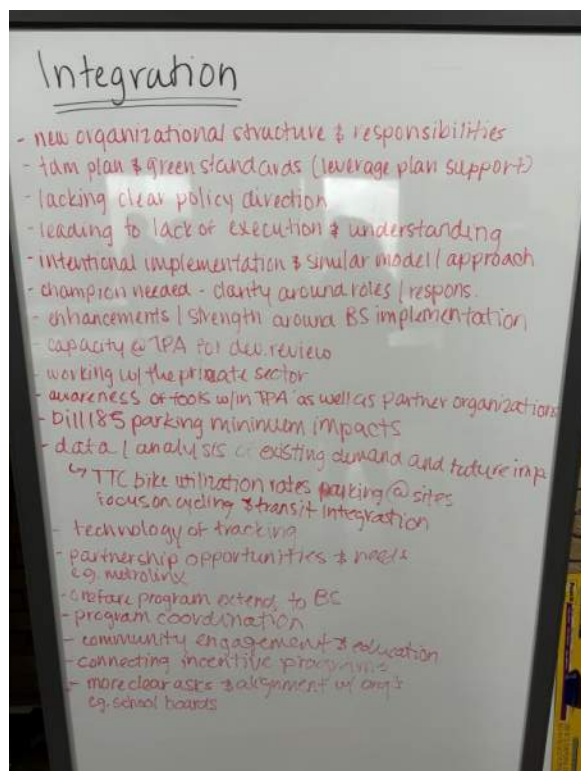 Integration
- new organizational structure & responsibilities
- tdm plan & green standards (leverage plan support)
- lacking clear policy direction
- leading to lack of execution & understanding
- intentional implementation & similar model / approach
- champion needed - clarity around roles / respons.
- enhancements / strength around BS implementation
- capacity @ TPA for dev. review
- working w/ the private sector
- awareness of tools w/in TPA as well as partner organizations
- bill 185 parking minimum impacts
- data / analysis of existing demand and future imp
↳ TTC bike utilization rates parking @ sites
Focus on cycling & transit integration
- technology of tracking
- partnership opportunities & needs
e.g. metrolinx
- onefare program extend to BS
- program coordination
- community engagement & education
- connecting incentive programs
- more clear asks & alignment w/ org's
eg. school boards